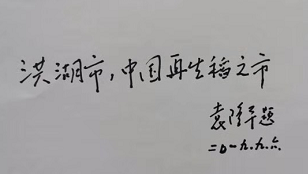 洪湖市，中国再生稻之市
袁隆平题
二〇一九.九.六